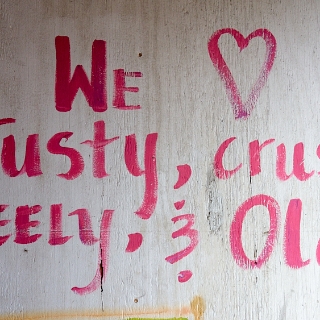 We ♥
usty, crus
eely, & Ol